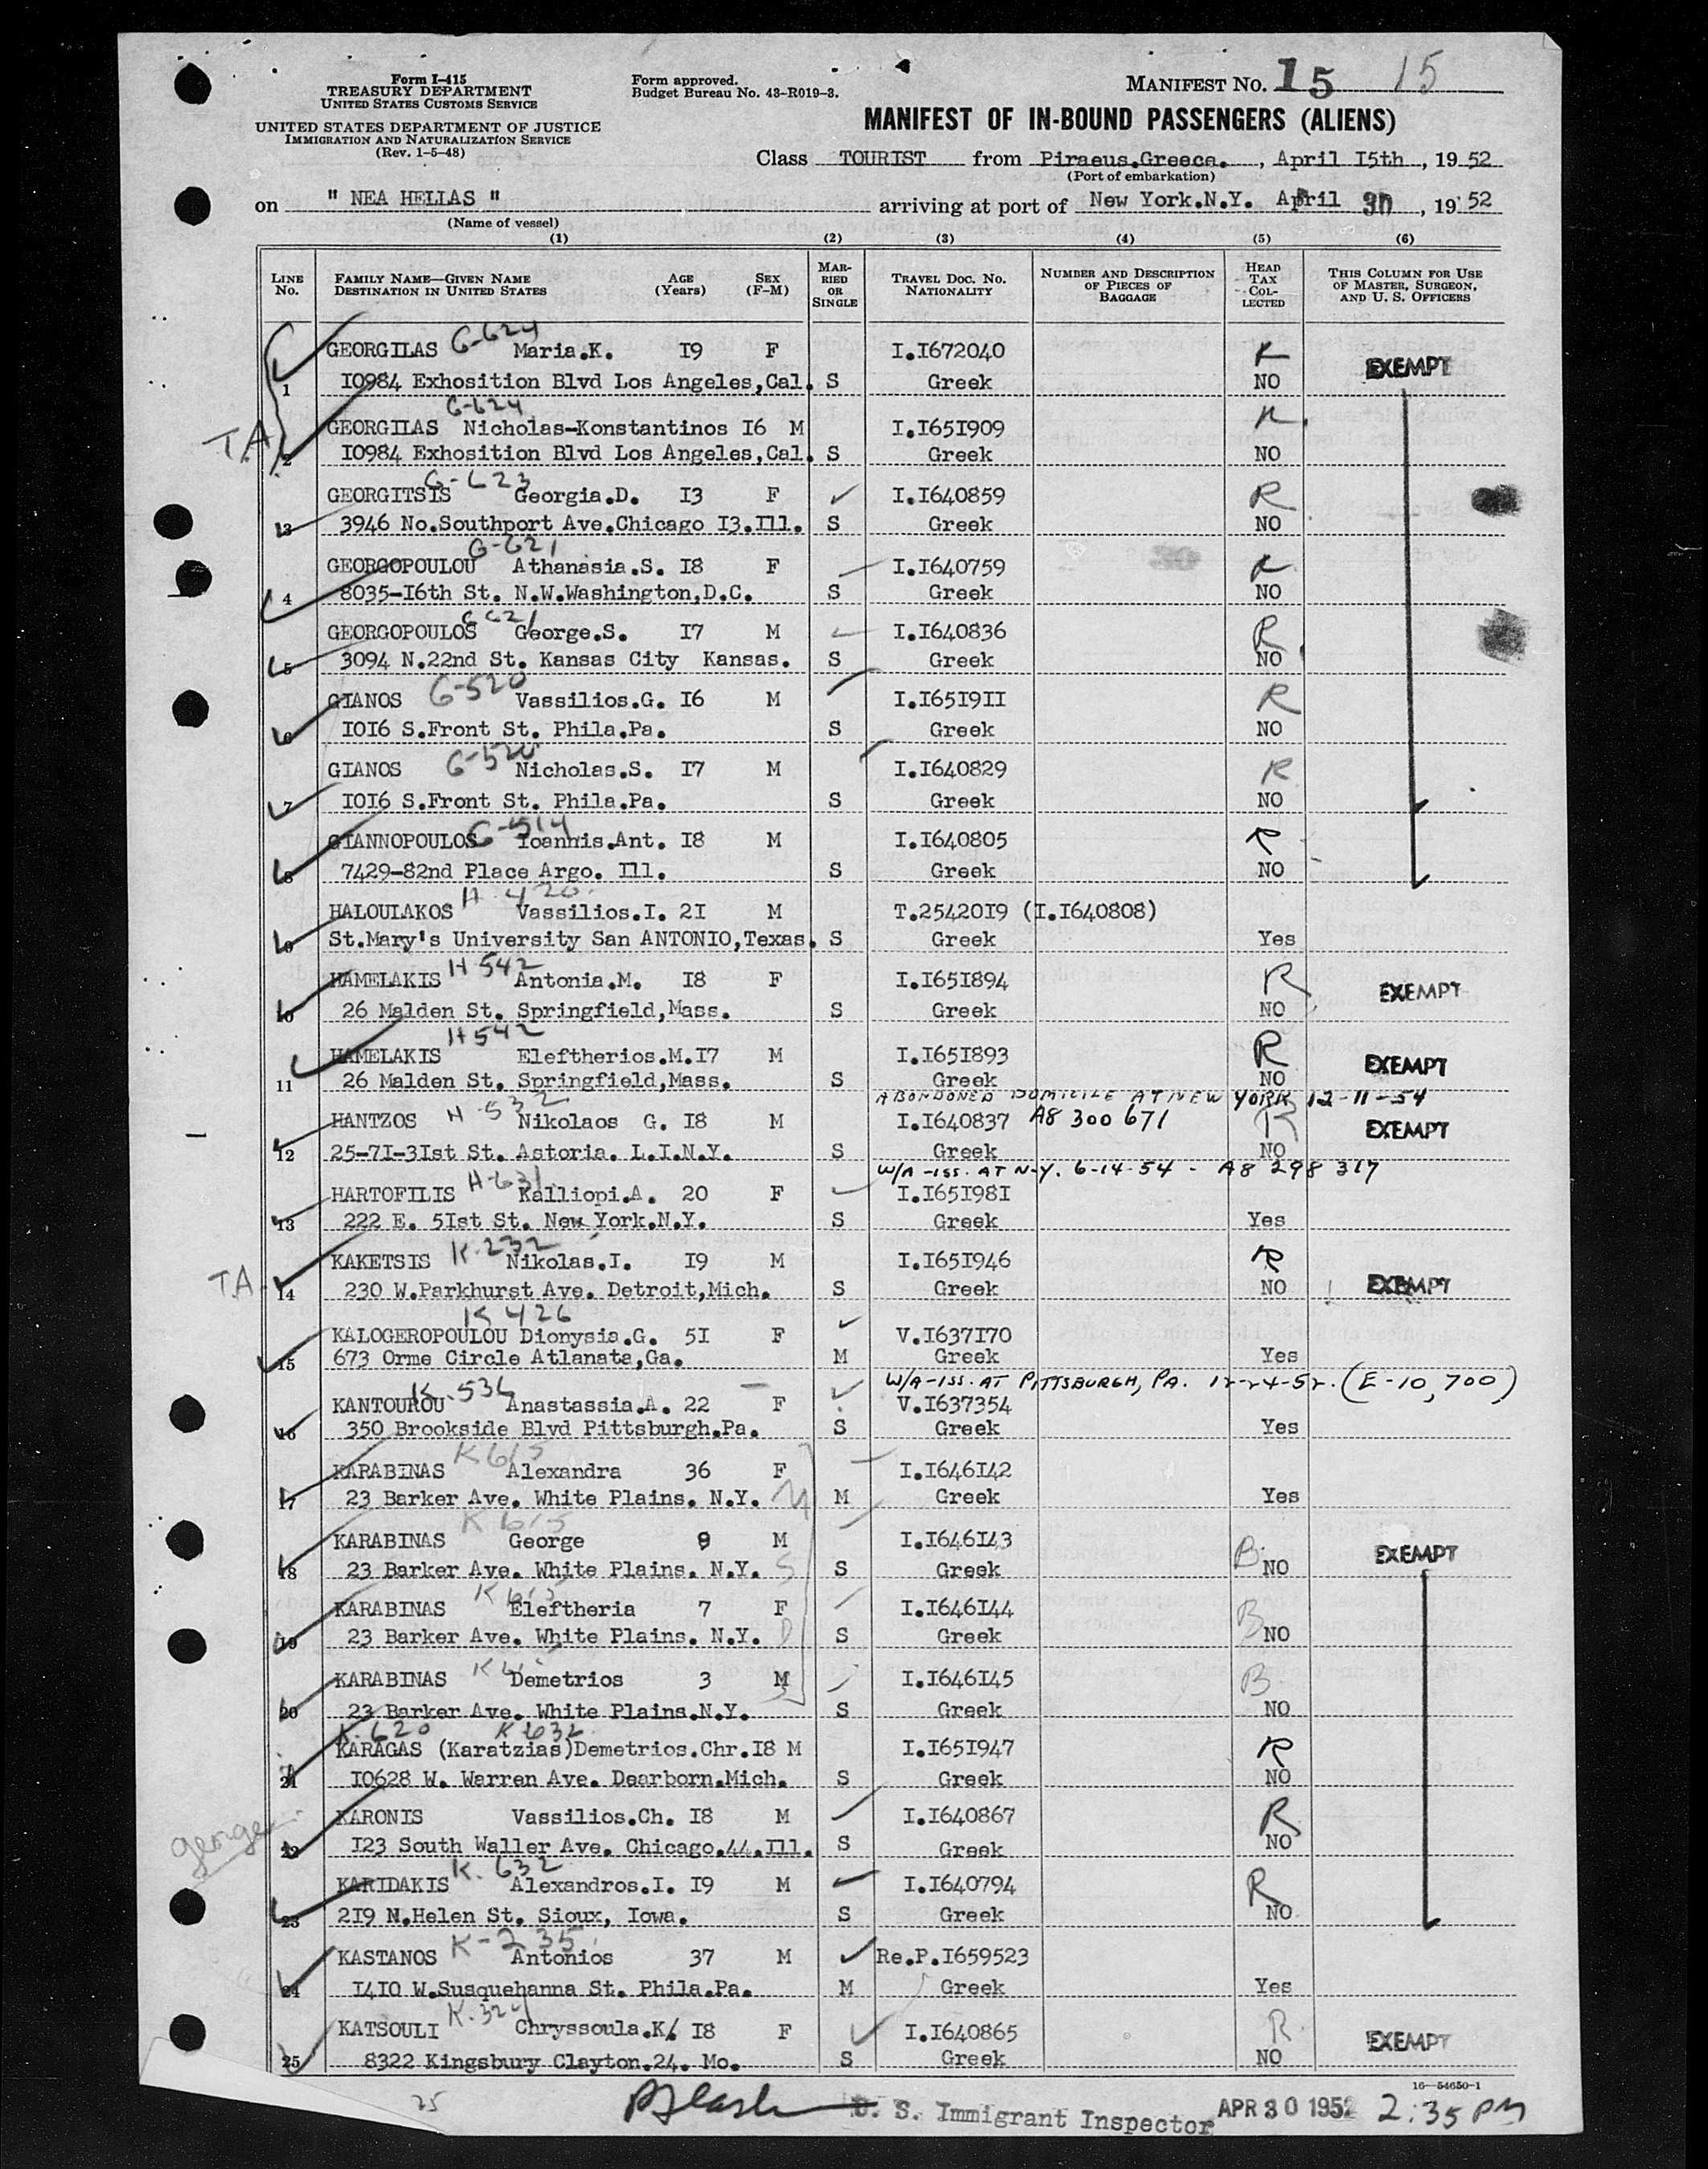 Form I-415
TREASURY DEPARTMENT
UNITED STATES CUSTOMS SERVICE
UNITED STATES DEPARTMENT OF JUSTICE
IMMIGRATION AND NATURALIZATION SERVICE
(Rev. 1-5-48)
Form approved.
Budget Bureau No. 43-R019-3.
MANIFEST NO. 15 15
MANIFEST OF IN-BOUND PASSENGERS (ALIENS)
Class TOURIST from Piraeus.Greece., April I5th, 1952
(Port of embarkation)
on " NEA HELLAS " arriving at port of New York.N.Y. April 30, 1952
(Name of vessel)
(1) (2) (3) (4) (5) (6)
LINE NO.
FAMILY NAME—GIVEN NAME DESTINATION IN UNITED STATES
AGE (Years)
SEX (F-M)
MARRIED OR SINGLE
TRAVEL DOC. NO. NATIONALITY
NUMBER AND DESCRIPTION OF PIECES OF BAGGAGE
HEAD TAX COLLECTED
THIS COLUMN FOR USE OF MASTER, SURGEON, AND U. S. OFFICERS
G-624
GEORGILAS Maria.K. I9 F I.I672040 R EXEMPT
1 I0984 Exhosition Blvd Los Angeles,Cal. S Greek NO
G-624
TA
GEORGIIAS Nicholas-Konstantinos I6 M I.I65I909 R
2 I0984 Exhosition Blvd Los Angeles,Cal. S Greek NO
G-623
GEORGITSIS Georgia.D. I3 F I.I640859 R
3 3946 No.Southport Ave.Chicago I3.Ill. S Greek NO
G-621
GEORGOPOULOU Athanasia.S. I8 F I.I640759 R
4 8035-I6th St. N.W.Washington,D.C. S Greek NO
G621
GEORGOPOULOS George.S. I7 M I.I640836 R
5 3094 N.22nd St. Kansas City Kansas. S Greek NO
G-520
GIANOS Vassilios.G. I6 M I.I65I9II R
6 I0I6 S.Front St. Phila.Pa. S Greek NO
G-520
GIANOS Nicholas.S. I7 M I.I640829 R
7 I0I6 S.Front St. Phila.Pa. S Greek NO
G-514
GIANNOPOULOS Ioannis.Ant. I8 M I.I640805 R
8 7429-82nd Place Argo. Ill. S Greek NO
H-420
HALOULAKOS Vassilios.I. 2I M T.25420I9 (I.I640808)
9 St.Mary's University San ANTONIO,Texas. S Greek Yes
H 542
HAMELAKIS Antonia.M. I8 F I.I65I894 R EXEMPT
10 26 Malden St. Springfield,Mass. S Greek NO
H542
HAMELAKIS Eleftherios.M.I7 M I.I65I893 R EXEMPT
11 26 Malden St. Springfield,Mass. S Greek NO
ABONDONED DOMICILE AT NEW YORK 12-11-54
H-532
HANTZOS Nikolaos G. I8 M I.I640837 A8 300 671 R EXEMPT
12 25-7I-3Ist St. Astoria. L.I.N.Y. S Greek NO
W/A-ISS. AT N.Y. 6-14-54 - A8 298 317
H-631
HARTOFILIS Kalliopi.A. 20 F I.I65I98I
13 222 E. 5Ist St. New York.N.Y. S Greek Yes
K.232
KAKETSIS Nikolas.I. I9 M I.I65I946 R
TA 14 230 W.Parkhurst Ave. Detroit,Mich. S Greek NO EXEMPT
K 426
KALOGEROPOULOU Dionysia.G. 5I F V.I637I70
15 673 Orme Circle Atlanata,Ga. M Greek Yes
W/A-ISS. AT PITTSBURGH, PA. 12-24-52. (E-10,700)
K-536
KANTOUROU Anastassia.A. 22 F V.I637354
16 350 Brookside Blvd Pittsburgh.Pa. S Greek Yes
K615
KARABINAS Alexandra 36 F I.I646I42
17 23 Barker Ave. White Plains. N.Y. M M Greek Yes
K 615
KARABINAS George 9 M I.I646I43 B EXEMPT
18 23 Barker Ave. White Plains. N.Y. S S Greek NO
K 615
KARABINAS Eleftheria 7 F I.I646I44 B
19 23 Barker Ave. White Plains. N.Y. D S Greek NO
KARABINAS Demetrios 3 M I.I646I45 B
20 23 Barker Ave. White Plains.N.Y. S S Greek NO
K.620 K632
KARAGAS (Karatzias)Demetrios.Chr.I8 M I.I65I947 R
21 I0628 W. Warren Ave. Dearborn.Mich. S Greek NO
KARONIS Vassilios.Ch. I8 M I.I640867 R
george 22 I23 South Waller Ave. Chicago.44.Ill. S Greek NO
K.632
KARIDAKIS Alexandros.I. I9 M I.I640794 R
23 2I9 N.Helen St. Sioux, Iowa. S Greek NO
K-235
KASTANOS Antonios 37 M Re.P.I659523
24 I4I0 W.Susquehanna St. Phila.Pa. M Greek Yes
K.324
KATSOULI Chryssoula.K. I8 F I.I640865 R EXEMPT
25 8322 Kingsbury Clayton.24. Mo. S Greek NO
16—54650-1
25 U. S. Immigrant Inspector APR 30 1952 2:35 PM